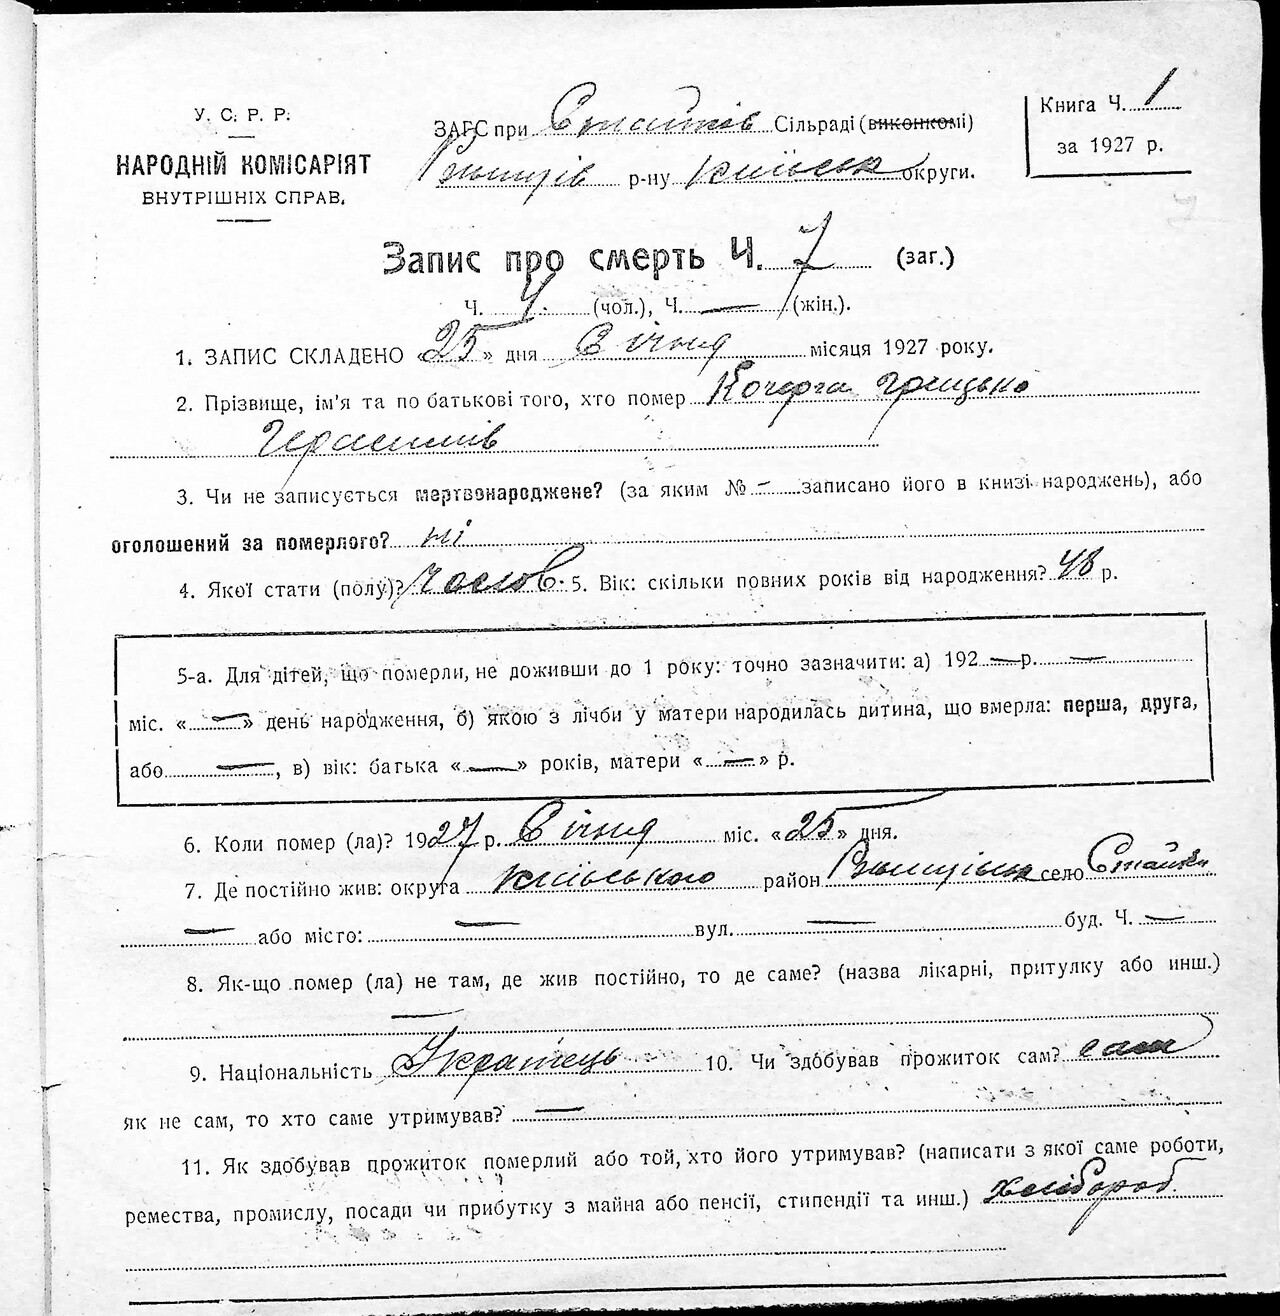 У. С. Р. Р.
НАРОДНІЙ КОМІСАРІЯТ
ВНУТРІШНІХ СПРАВ.
ЗАГС при Стайків Сільраді (виконкомі)
р-ну Київськ округи.
Книга Ч. 1
за 1927 р.
Запис про смерть Ч. 7 (заг.)
Ч. 4. (чол.), Ч. — (жін.).
1. ЗАПИС СКЛАДЕНО «25» дня Січня місяця 1927 року.
2. Прізвище, ім'я та по батькові того, хто помер Кочерга Грицько
Герасимів
3. Чи не записується мертвонароджене? (за яким № — записано його в книзі народжень), або
оголошений за померлого? ні
4. Якої стати (полу)? чолов. 5. Вік: скільки повних років від народження? 48 р.
5-а. Для дітей, що померли, не доживши до 1 року: точно зазначити: а) 192 — р. —
міс. « — » день народження, б) якою з лічби у матери народилась дитина, що вмерла: перша, друга,
або — , в) вік: батька « — » років, матери « — » р.
6. Коли помер (ла)? 1927 р. Січня міс. «25» дня.
7. Де постійно жив: округа Київського район село Стайки
— або місто: — вул. — буд. Ч. —
8. Як-що помер (ла) не там, де жив постійно, то де саме? (назва лікарні, притулку або инш.)
—
9. Національність Українець 10. Чи здобував прожиток сам? сам
як не сам, то хто саме утримував? —
11. Як здобував прожиток померлий або той, хто його утримував? (написати з якої саме роботи,
ремества, промислу, посади чи прибутку з майна або пенсії, стипендії та инш.) хлібороб.